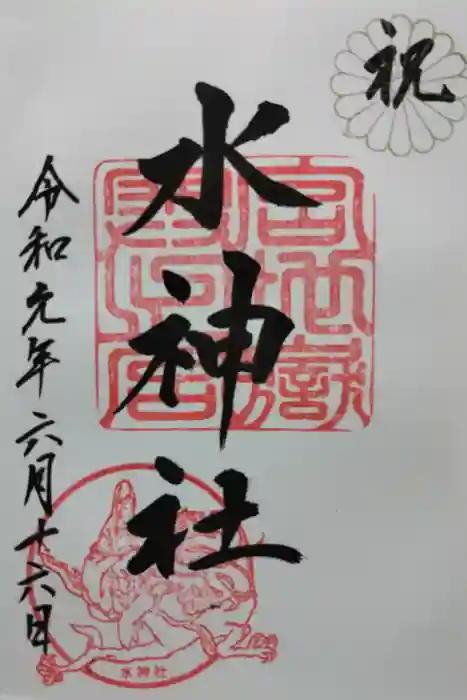 祝
水神社
令和元年六月十六日
水神社